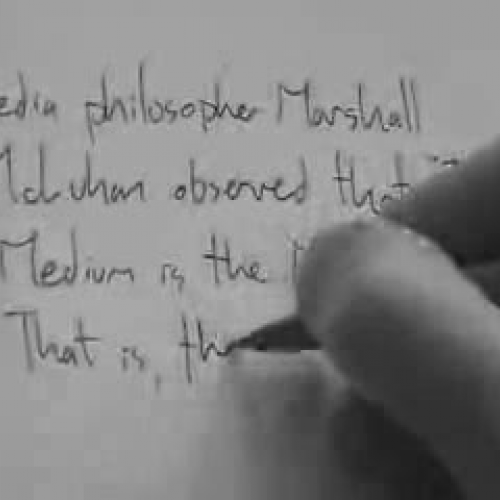 edia philosopher Marshall
McLuhan observed that "T
Medium is the M
That is, th